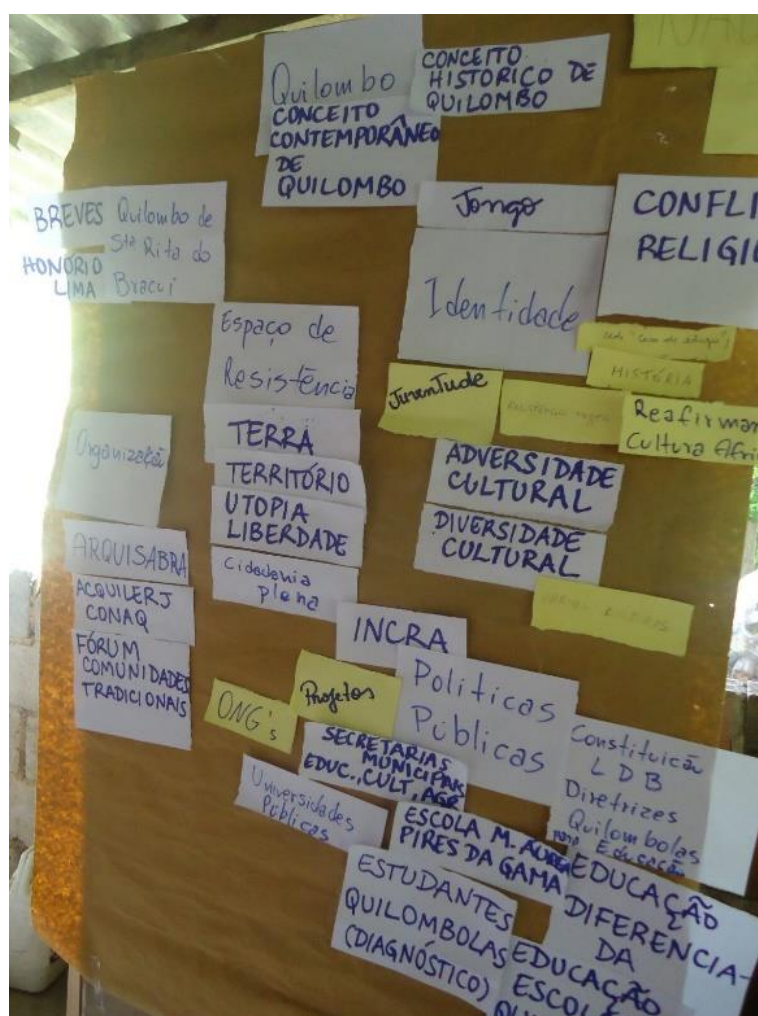 Quilombo
CONCEITO
HISTÓRICO DE
QUILOMBO
CONCEITO
CONTEMPORÂNEO
DE
QUILOMBO
BREVES
HONÓRIO
LIMA
Quilombo de
Sta Rita do
Bracuí
Jongo
CONFLI
RELIGI
Identidade
Espaço de
Resistência
HISTÓRIA
Juventude
Reafirmar
Cultura Afri
TERRA
TERRITÓRIO
UTOPIA
LIBERDADE
Cidadania
plena
ADVERSIDADE
CULTURAL
DIVERSIDADE
CULTURAL
Organização
ARQUISABRA
ACQUILERJ
CONAQ
FÓRUM
COMUNIDADES
TRADICIONAIS
INCRA
Projetos
ONG's
Políticas
Públicas
SECRETARIAS
MUNICIPAIS
EDUC., CULT, AGR
Universidades
Públicas
Constituição
LDB
Diretrizes
Quilombolas
para Educação
ESCOLA M. ÁUREA
PIRES DA GAMA
ESTUDANTES
QUILOMBOLAS
(DIAGNÓSTICO)
EDUCAÇÃO
DIFERENCIA-
DA
EDUCAÇÃO
ESCOL
QU